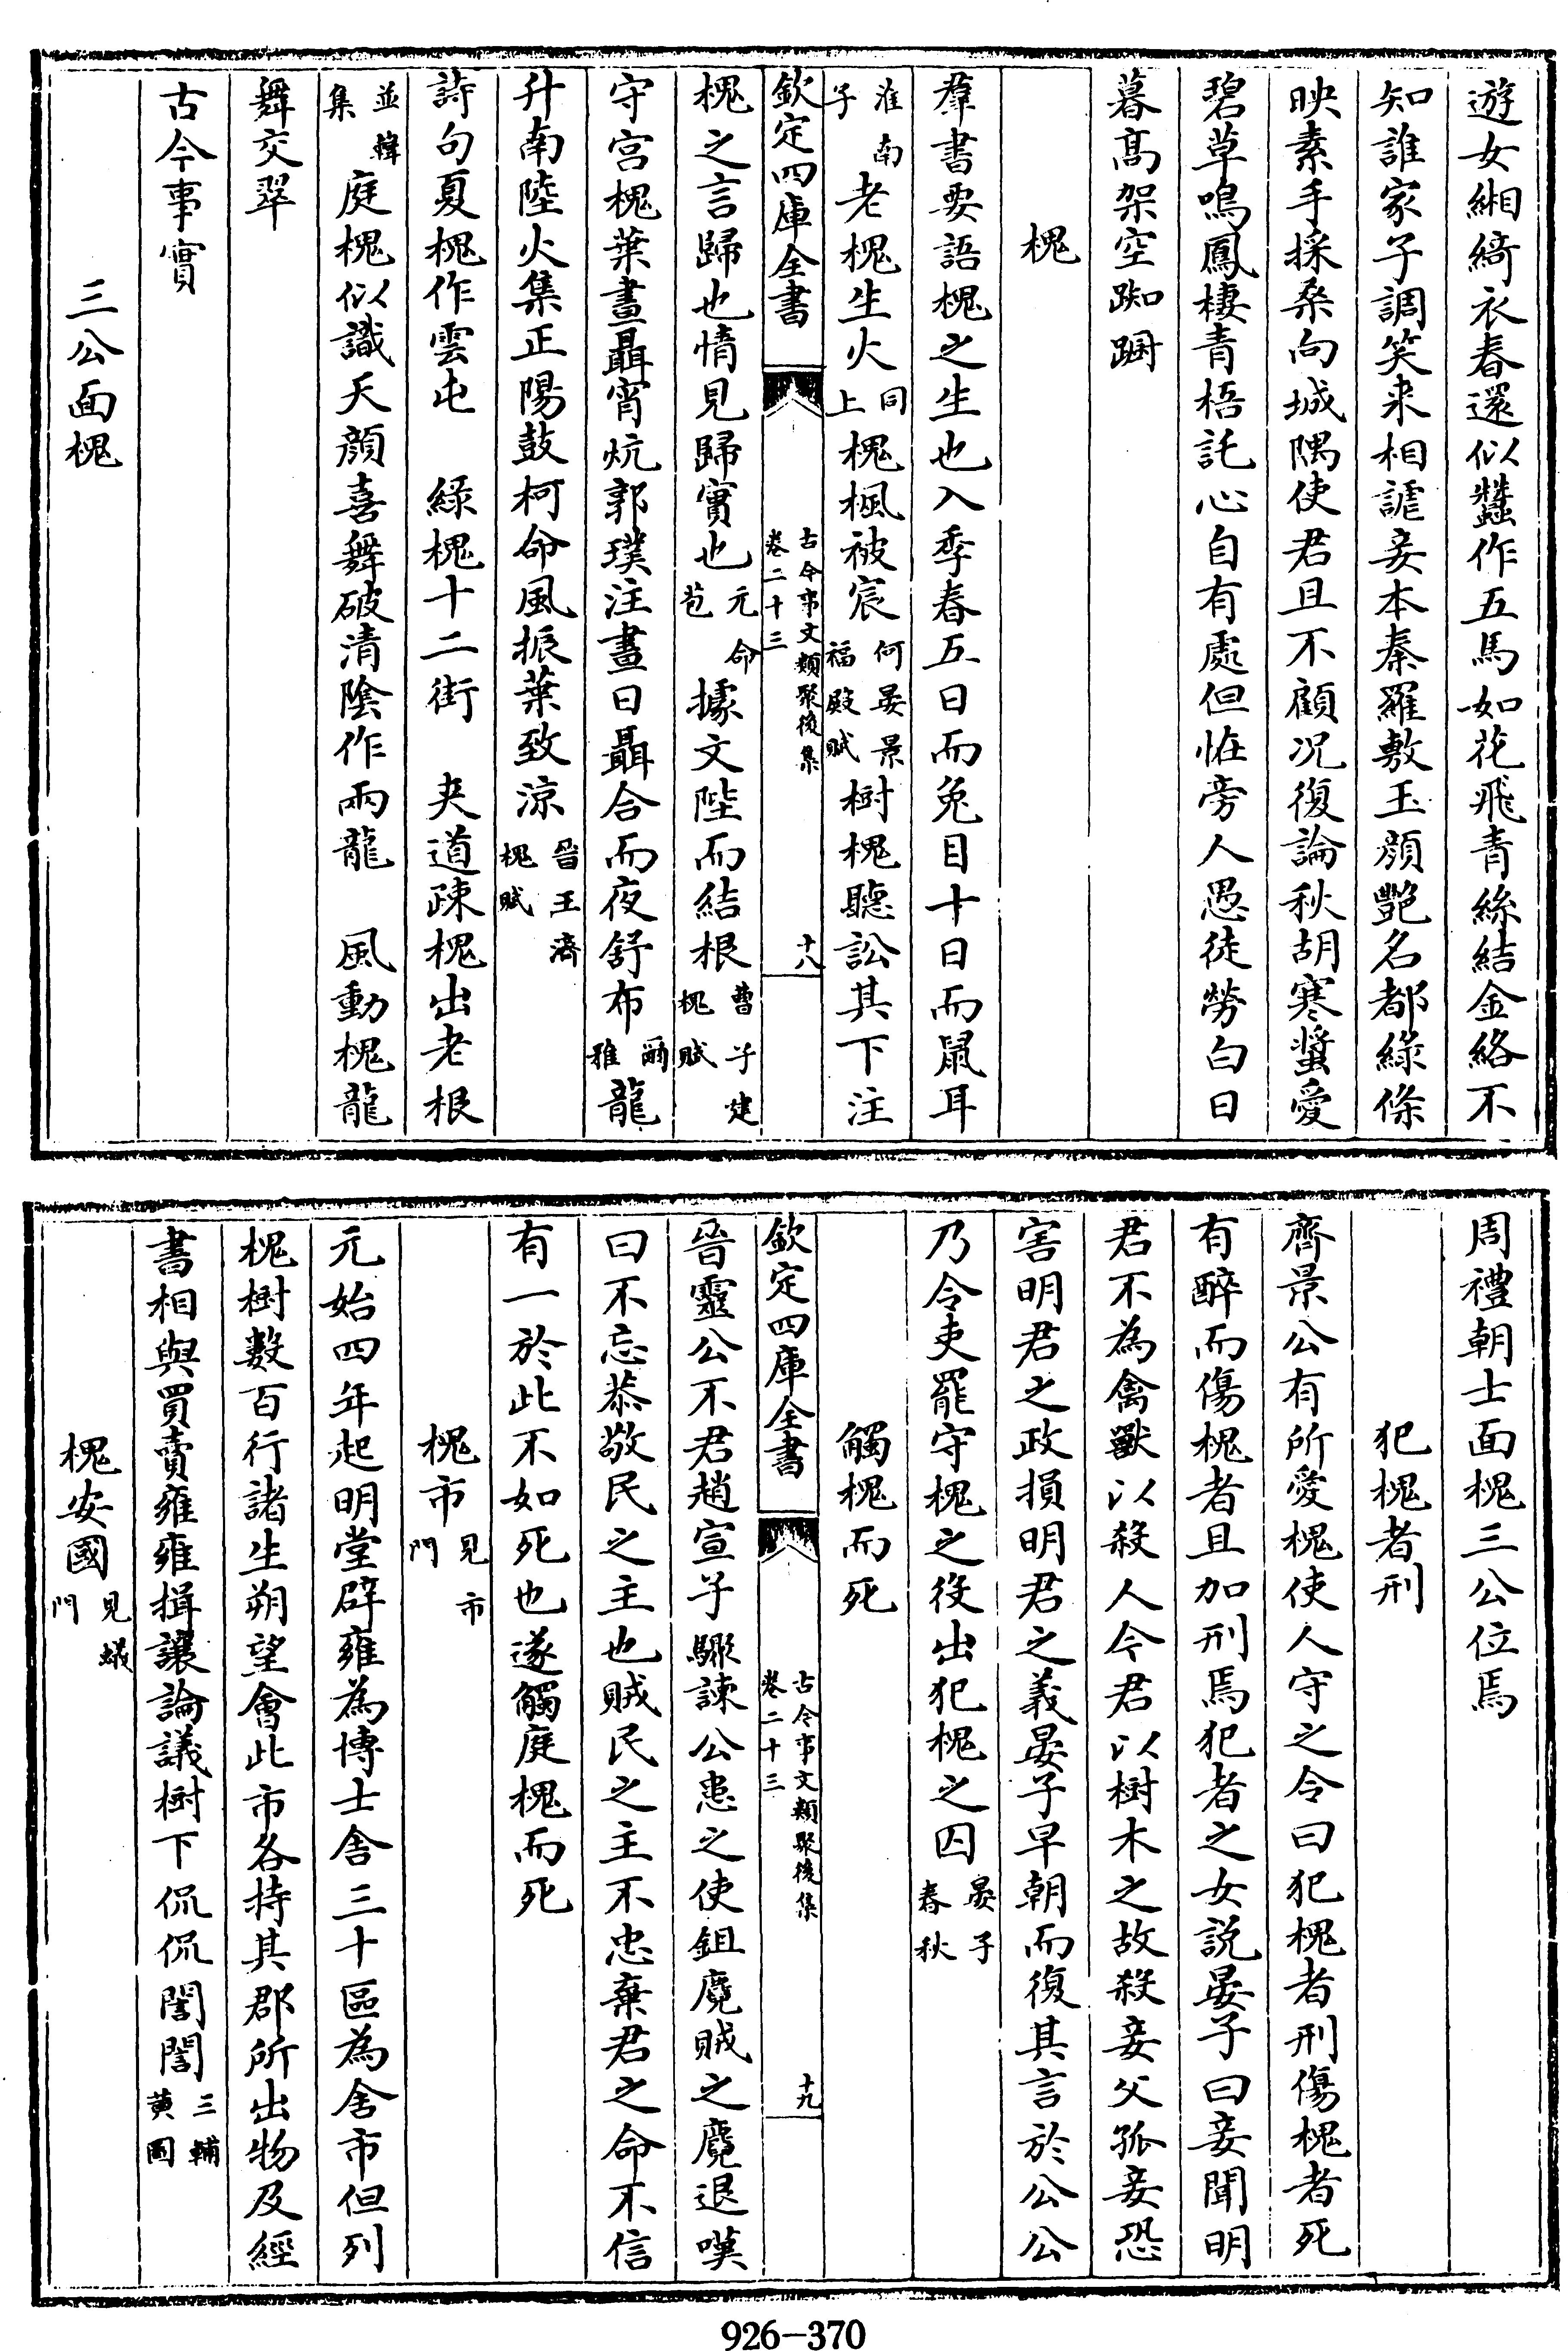 遊女緗綺衣春還似蠶作五馬如花飛青絲結金絡不
知誰家子調笑来相謔妾本秦羅敷玉顔艷名都綠條
映素手採桑向城隅使君且不顧况復論秋胡寒螀愛
碧草鳴鳳棲青梧託心自有處但恠旁人愚徒勞白日
暮髙架空踟蹰
槐
羣書要語槐之生也入季春五日而兔目十日而鼠耳
淮南子老槐生火同上槐楓被宸何晏景福殿賦樹槐聽訟其下注
欽定四庫全書
古今事文類聚後集
卷二十三
十八
槐之言歸也情見歸實也元命苞據文陛而結根曹子建槐賦
守宫槐葉晝聶宵炕郭璞注晝日聶合而夜舒布爾雅龍
升南陸火集正陽鼓柯命風振葉致涼晉王濟槐賦
詩句夏槐作雲屯　綠槐十二街　夹道疎槐出老根
並韓集庭槐似識天顔喜舞破清陰作兩龍　風動槐龍
舞交翠
古今事實
三公面槐
周禮朝士面槐三公位焉
犯槐者刑
齊景公有所愛槐使人守之令曰犯槐者刑傷槐者死
有醉而傷槐者且加刑焉犯者之女説晏子曰妾聞明
君不為禽獸以殺人今君以樹木之故殺妾父孤妾恐
害明君之政損明君之義晏子早朝而復其言於公公
乃令吏罷守槐之役出犯槐之囚晏子春秋
觸槐而死
欽定四庫全書
古今事文類聚後集
卷二十三
十九
晉靈公不君趙宣子驟諫公患之使鉏麑賊之麑退嘆
曰不忘恭敬民之主也賊民之主不忠棄君之命不信
有一於此不如死也遂觸庭槐而死
槐市見市門
元始四年起明堂辟雍為博士舍三十區為舍市但列
槐樹數百行諸生朔望會此市各持其郡所出物及經
書相與買賣雍雍揖讓論議樹下侃侃誾誾三輔黄圖
槐安國見蟻門
926-370